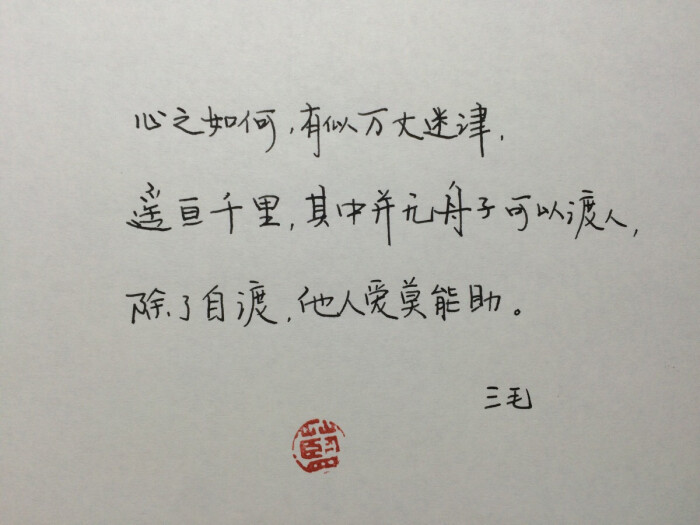 心之如何，有似万丈迷津，
遥亘千里，其中并无舟子可以渡人，
除了自渡，他人爱莫能助。
三毛
藍